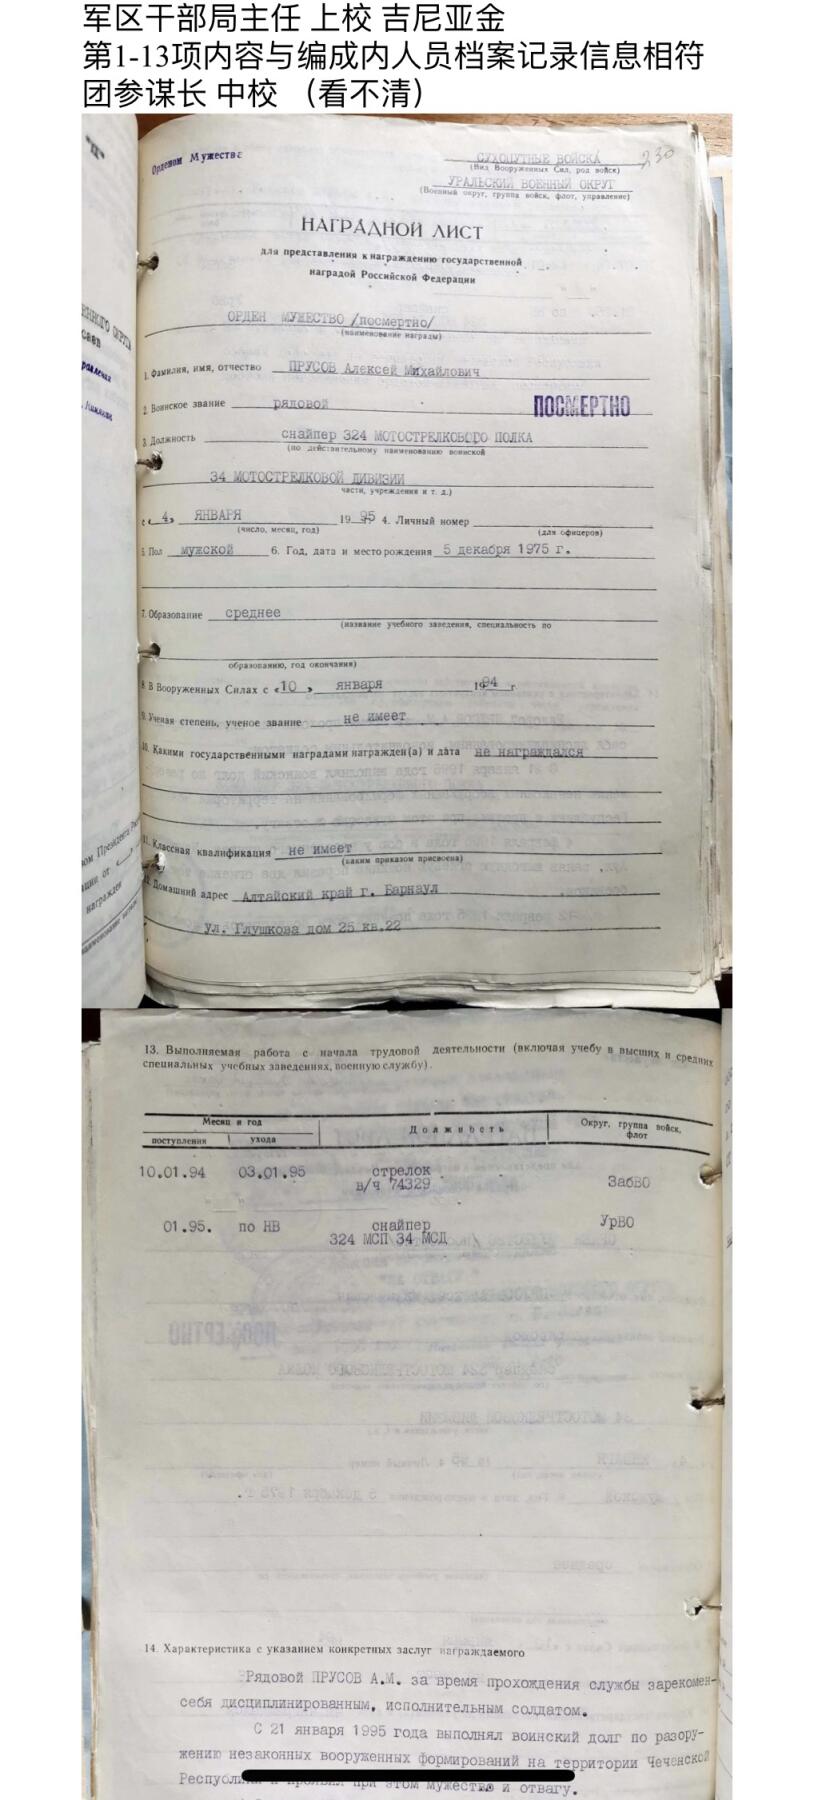 军区干部局主任 上校 吉尼亚金
第1-13项内容与编成内人员档案记录信息相符
团参谋长 中校 （看不清）
Орденом Мужества
СУХОПУТНЫЕ ВОЙСКА
230
(Вид Вооруженных Сил, род войск)
УРАЛЬСКИЙ ВОЕННЫЙ ОКРУГ
(Военный округ, группа войск, флот, управление)
НАГРАДНОЙ ЛИСТ
для представления к награждению государственной
наградой Российской Федерации
ОРДЕН МУЖЕСТВО /посмертно/
(наименование награды)
1. Фамилия, имя, отчество ПРУСОВ Алексей Михайлович
2. Воинское звание рядовой
ПОСМЕРТНО
3. Должность снайпер 324 МОТОСТРЕЛКОВОГО ПОЛКА
(по действительному наименованию воинской
34 МОТОСТРЕЛКОВОЙ ДИВИЗИИ
части, учреждения и т. д.)
с «4» ЯНВАРЯ 1995 4. Личный номер
(число, месяц, год) (для офицеров)
5. Пол мужской 6. Год, дата и место рождения 5 декабря 1975 г.
7. Образование среднее
(название учебного заведения, специальность по
образованию, год окончания)
8. В Вооруженных Силах с «10» января 1994 г
9. Ученая степень, ученое звание не имеет
10. Какими государственными наградами награжден(а) и дата не награждался
11. Классная квалификация не имеет
(каким приказом присвоена)
12. Домашний адрес Алтайский край г. Барнаул
ул. Глушкова дом 25 кв.22
13. Выполняемая работа с начала трудовой деятельности (включая учебу в высших и средних
специальных учебных заведениях, военную службу).
Месяц и год Должность Округ, группа войск, флот
поступления ухода
10.01.94 03.01.95 стрелок
в/ч 74329 ЗабВО
01.95. по НВ снайпер УрВО
324 МСП 34 МСД
14. Характеристика с указанием конкретных заслуг награждаемого
Рядовой ПРУСОВ А.М. за время прохождения службы зарекомен-
себя дисциплинированным, исполнительным солдатом.
С 21 января 1995 года выполнял воинский долг по разору-
жению незаконных вооруженных формирований на территории Чеченской
Республики и проявил при этом мужество и отвагу.